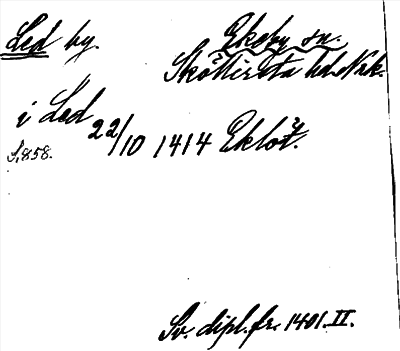 Led by.
Ekeby sn.
Sköllersta hd. Nrk.
i Led 22/10 1414 Eklof.
S. 858.
Sv. dipl. fr. 1401. II.